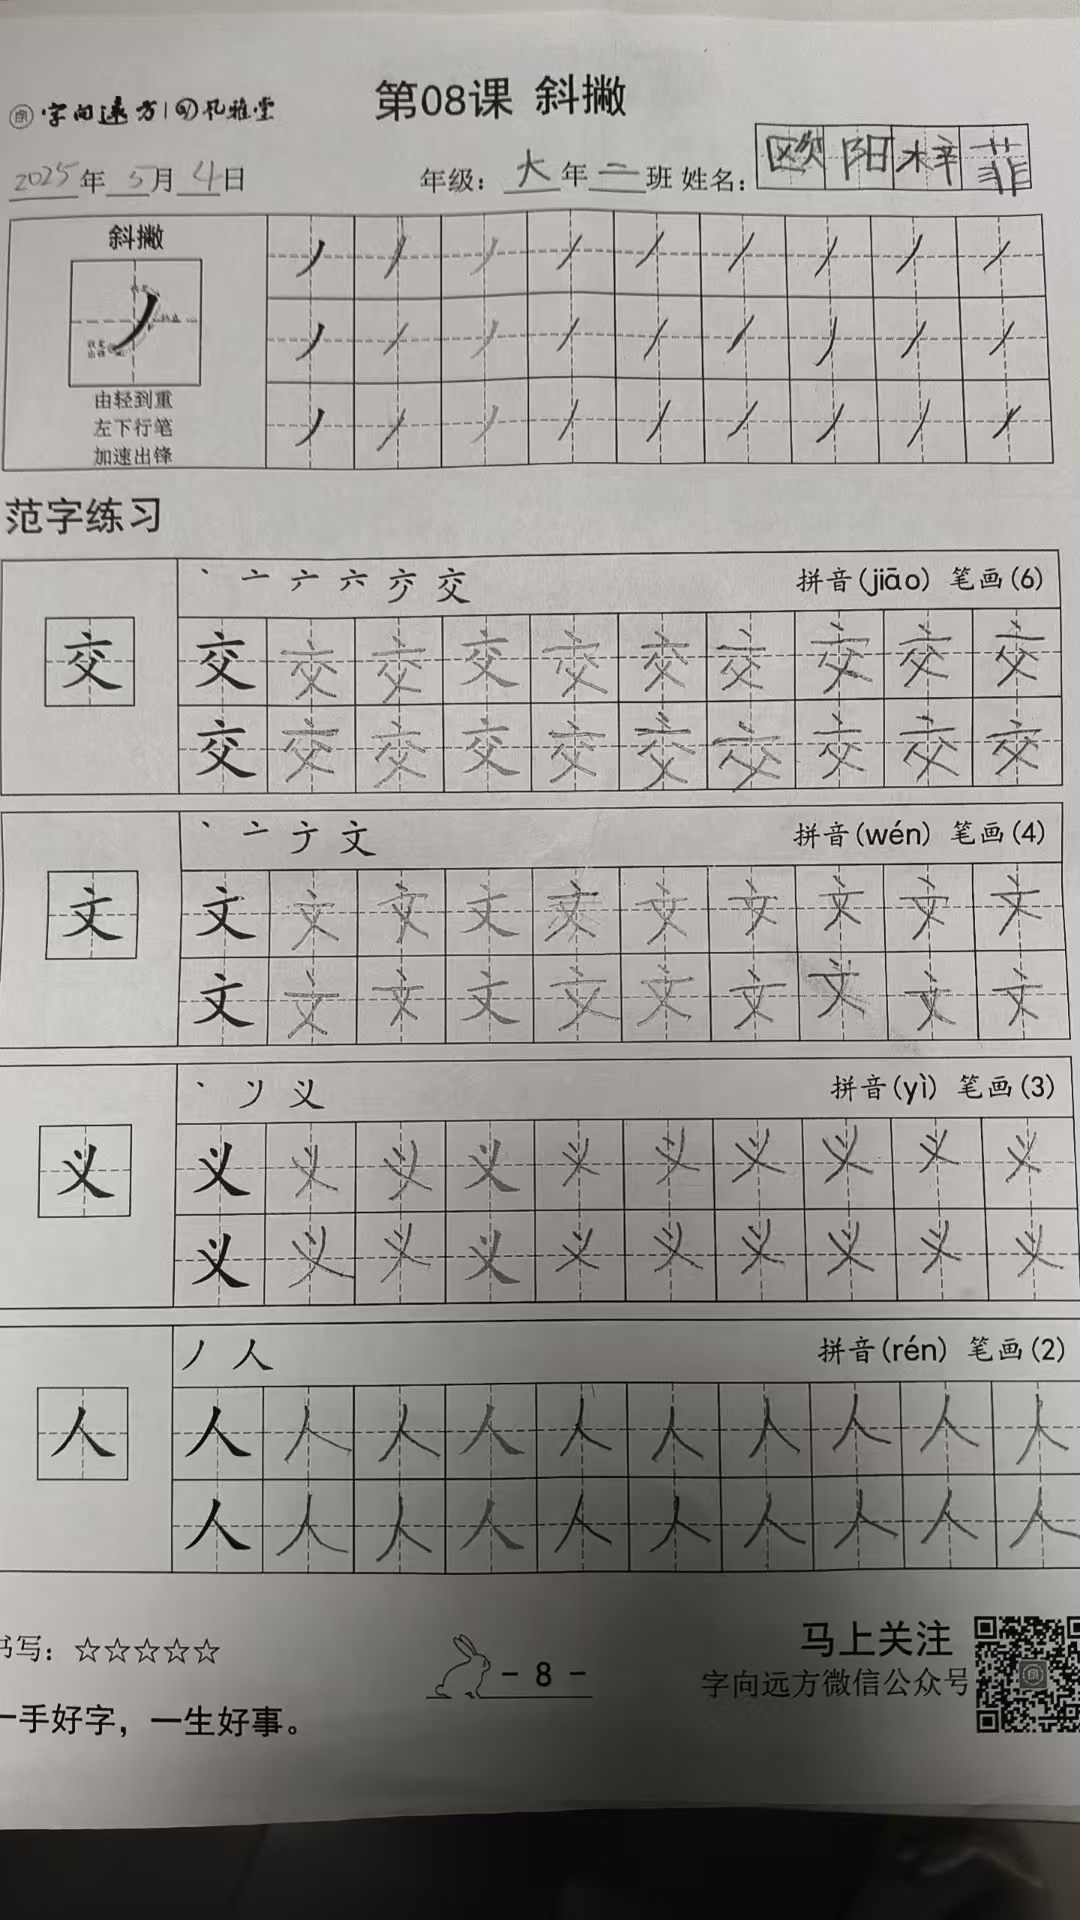 字向远方 孔雅堂
第08课 斜撇
2025年 5月 4日 年级：大年二班 姓名：欧阳梓菲
斜撇
由轻到重
左下行笔
加速出锋
范字练习
拼音(jiāo) 笔画(6)
交 交 交 交 交 交 交 交 交 交 交
交 交 交 交 交 交 交 交 交 交
拼音(wén) 笔画(4)
文 文 文 文 文 文 文 文 文 文 文
文 文 文 文 文 文 文 文 文 文
拼音(yì) 笔画(3)
义 义 义 义 义 义 义 义 义 义 义
义 义 义 义 义 义 义 义 义 义
丿 人 拼音(rén) 笔画(2)
人 人 人 人 人 人 人 人 人 人 人
人 人 人 人 人 人 人 人 人 人
书写：☆☆☆☆☆
一手好字，一生好事。
- 8 -
马上关注
字向远方微信公众号